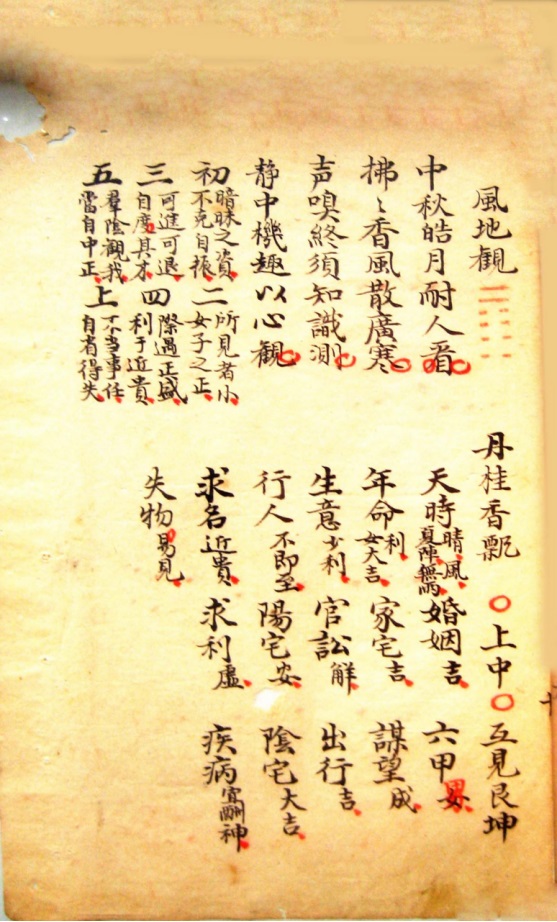 風地觀
中秋皓月耐人看
拂〻香風散廣寒
声嗅終須知識測
静中機趣以心觀
初 暗昧之資 不克自振 二 所見者小 女子之正
三 可進可退 自度其才 四 際遇正盛 利于近貴
五 羣陰觀我 當自中正 上 不当事任 自省得失
丹桂香飄 ○ 上中 ○ 互見艮坤
天時 晴風 夏陣無雨 婚姻 吉 六甲
年命 利 女大吉 家宅 吉 謀望 成
生意 少利 官訟 解 出行 吉
行人 不即至 陽宅 安 陰宅 大吉
求名 近貴 求利 虛 疾病 宜酬神
失物 易見